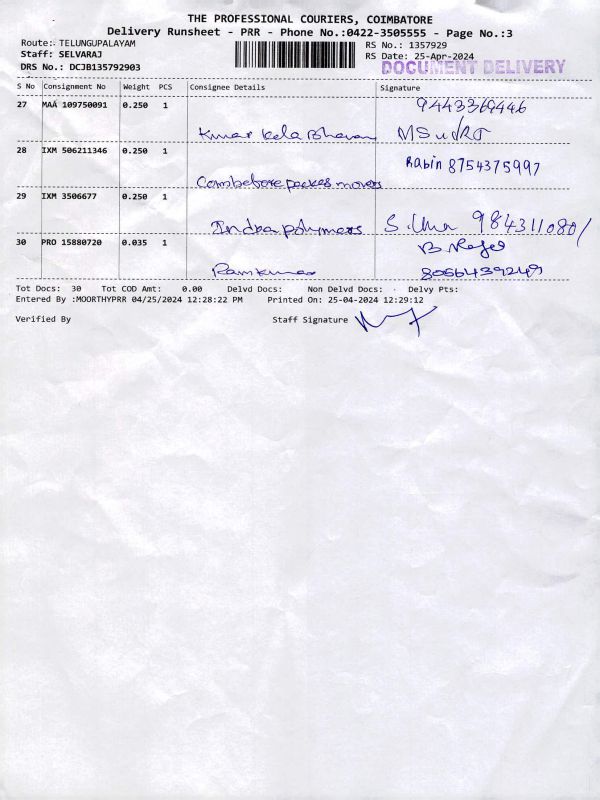 THE PROFESSIONAL COURIERS, COIMBATORE
Delivery Runsheet - PRR - Phone No.:0422-3505555 - Page No.:3
Route: TELUNGUPALAYAM
RS No.: 1357929
Staff: SELVARAJ
RS Date: 25-Apr-2024
DRS No.: DCJB135792903
DOCUMENT DELIVERY
S No Consignment No Weight PCS Consignee Details Signature
27 MAA 109750091 0.250 1 9443369446
Kumar kala Bhavan
28 IXM 506211346 0.250 1 Rabin 8754375997
Coimbatore packes movers
29 IXM 3506677 0.250 1
Indra polymers S. Uma 9843110801
30 PRO 15880720 0.035 1
Ramkumar 8056439249
Tot Docs: 30 Tot COD Amt: 0.00 Delvd Docs: Non Delvd Docs: Delvy Pts:
Entered By :MOORTHYPRR 04/25/2024 12:28:22 PM Printed On: 25-04-2024 12:29:12
Verified By Staff Signature